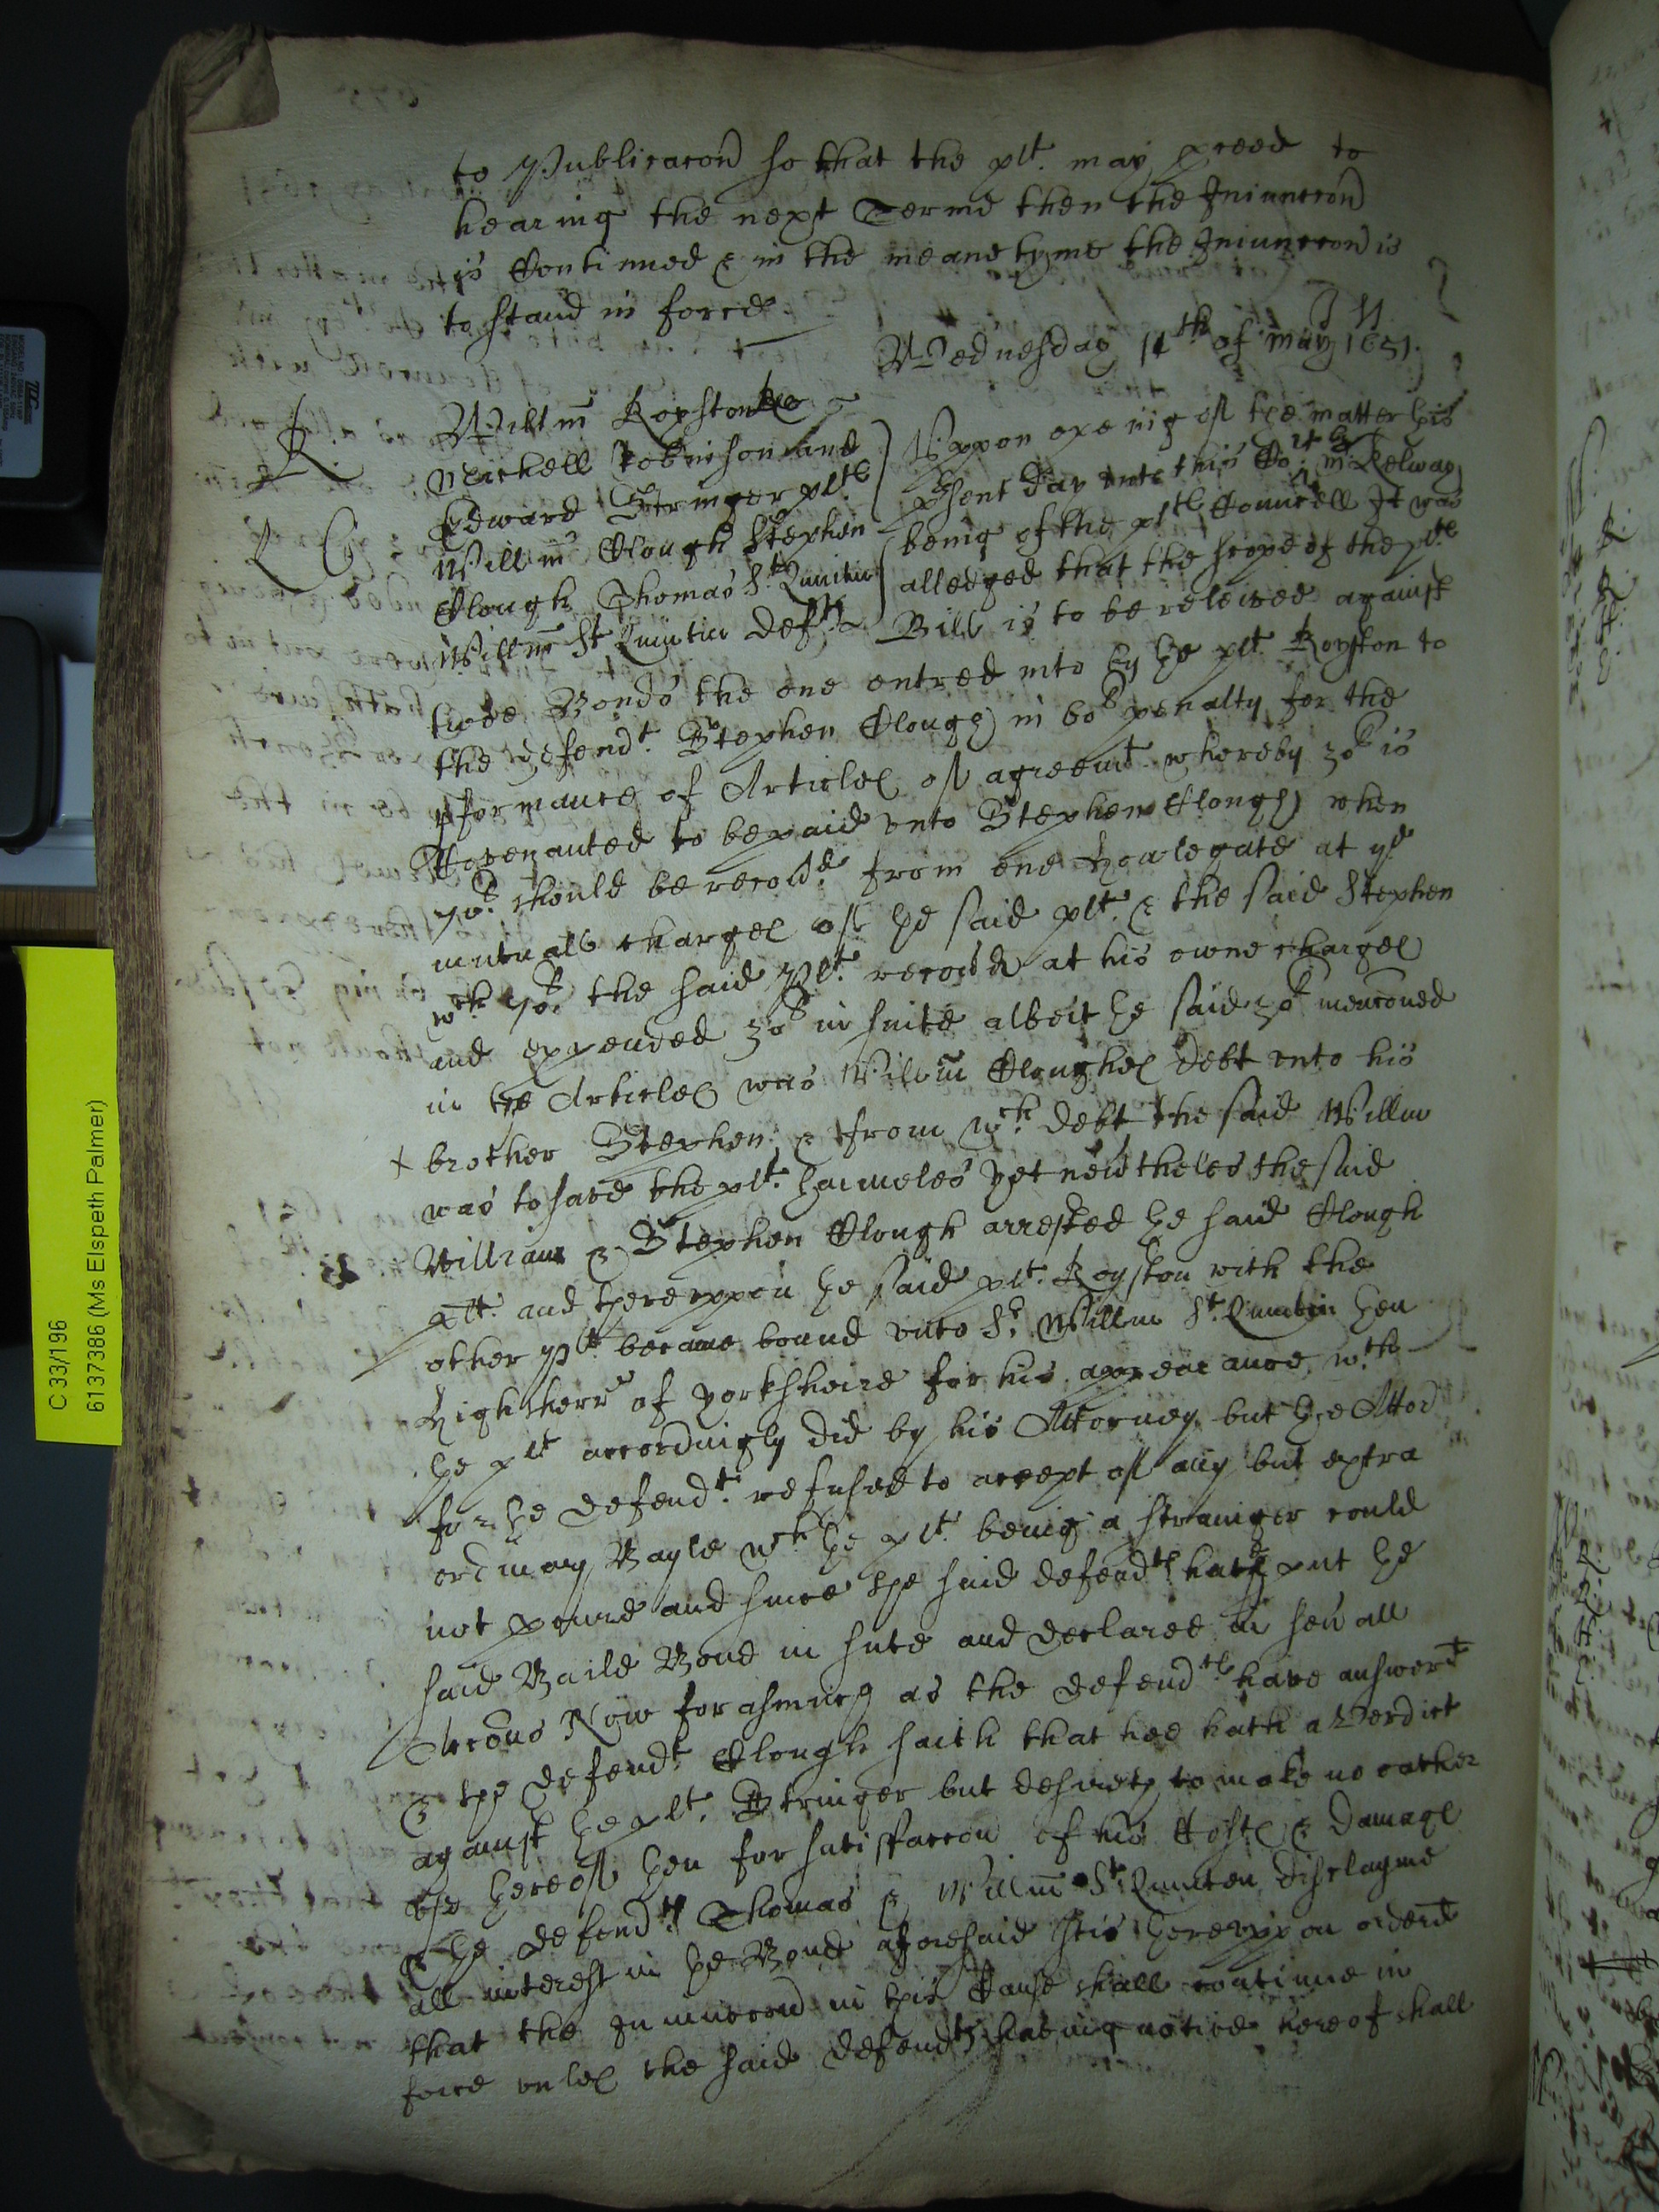 to Publicacon so that the plt. may pceed to
hearing the next Terme then the Iniunccon
is Continued & in the meane tyme the Iniunccon is
to stand in force
Wednesday 14th of may 1651.
R
Willm Royston
Michell Robinson and
Edward Stringer plts
Willm Clough Stephen
Clough Thomas St Quintin
Willm St Quintin Defts
Vppon opening of the matter this
psent day vnto this Cort by mr Kelway
being of the plts Councell It was
alledged that the scope of the plts
Bill is to be releived against
twoe Bonds the one entred into by the plt. Royston to
the defendt. Stephen Clough in 60l penalty for the
pformance of Articles of agreemt. whereby 30l is
Covenanted to be paid vnto Stephen Clough when
70l. should be recoud. from one at ye
mutuall charges of the said plt. & the said Stephen
wch 70l. the said Plt. recoud at his owne charges
and expended 30l in suite albeit the said 30l menconed
in the Articles was Willm Cloughes Debt vnto his
x brother Stephen & from wch. debt the said Willm
was to save the plt. harmeles yet neutheles the said
William & Stephen Clough arrested the said Clough
plt. and therevppon the said plt. Royston with the
other Plt. became bound vnto Sr. Willm St. Quintin then
high sherr of yorksheire for his appearance wth
the plt accordingly did by his Attorney but the Attor
for the defendt. refused to accept of any but extra
ordinary Bayle wch the plt. being a stranger could
not pcure and since the said defendts hath put the
said Baile Bond in suite and declared in seu all
Accons Now forasmuch as the defendts have answerd
& the defendt. Clough saith that hee hath a Verdict
against the plt. Stringer but desireth to make no other
vse thereof then for satisfaccon of his Costs & Damage
& the defendts Thomas & Willm St Quinten disclayme
all interest in the Bond aforesaid It is therevppon orderd
that the Iniunccon in this Cause shall continue in
force vnles the said defendts having notice hereof shall
C 33/196
6137386 (Ms Elspeth Palmer)